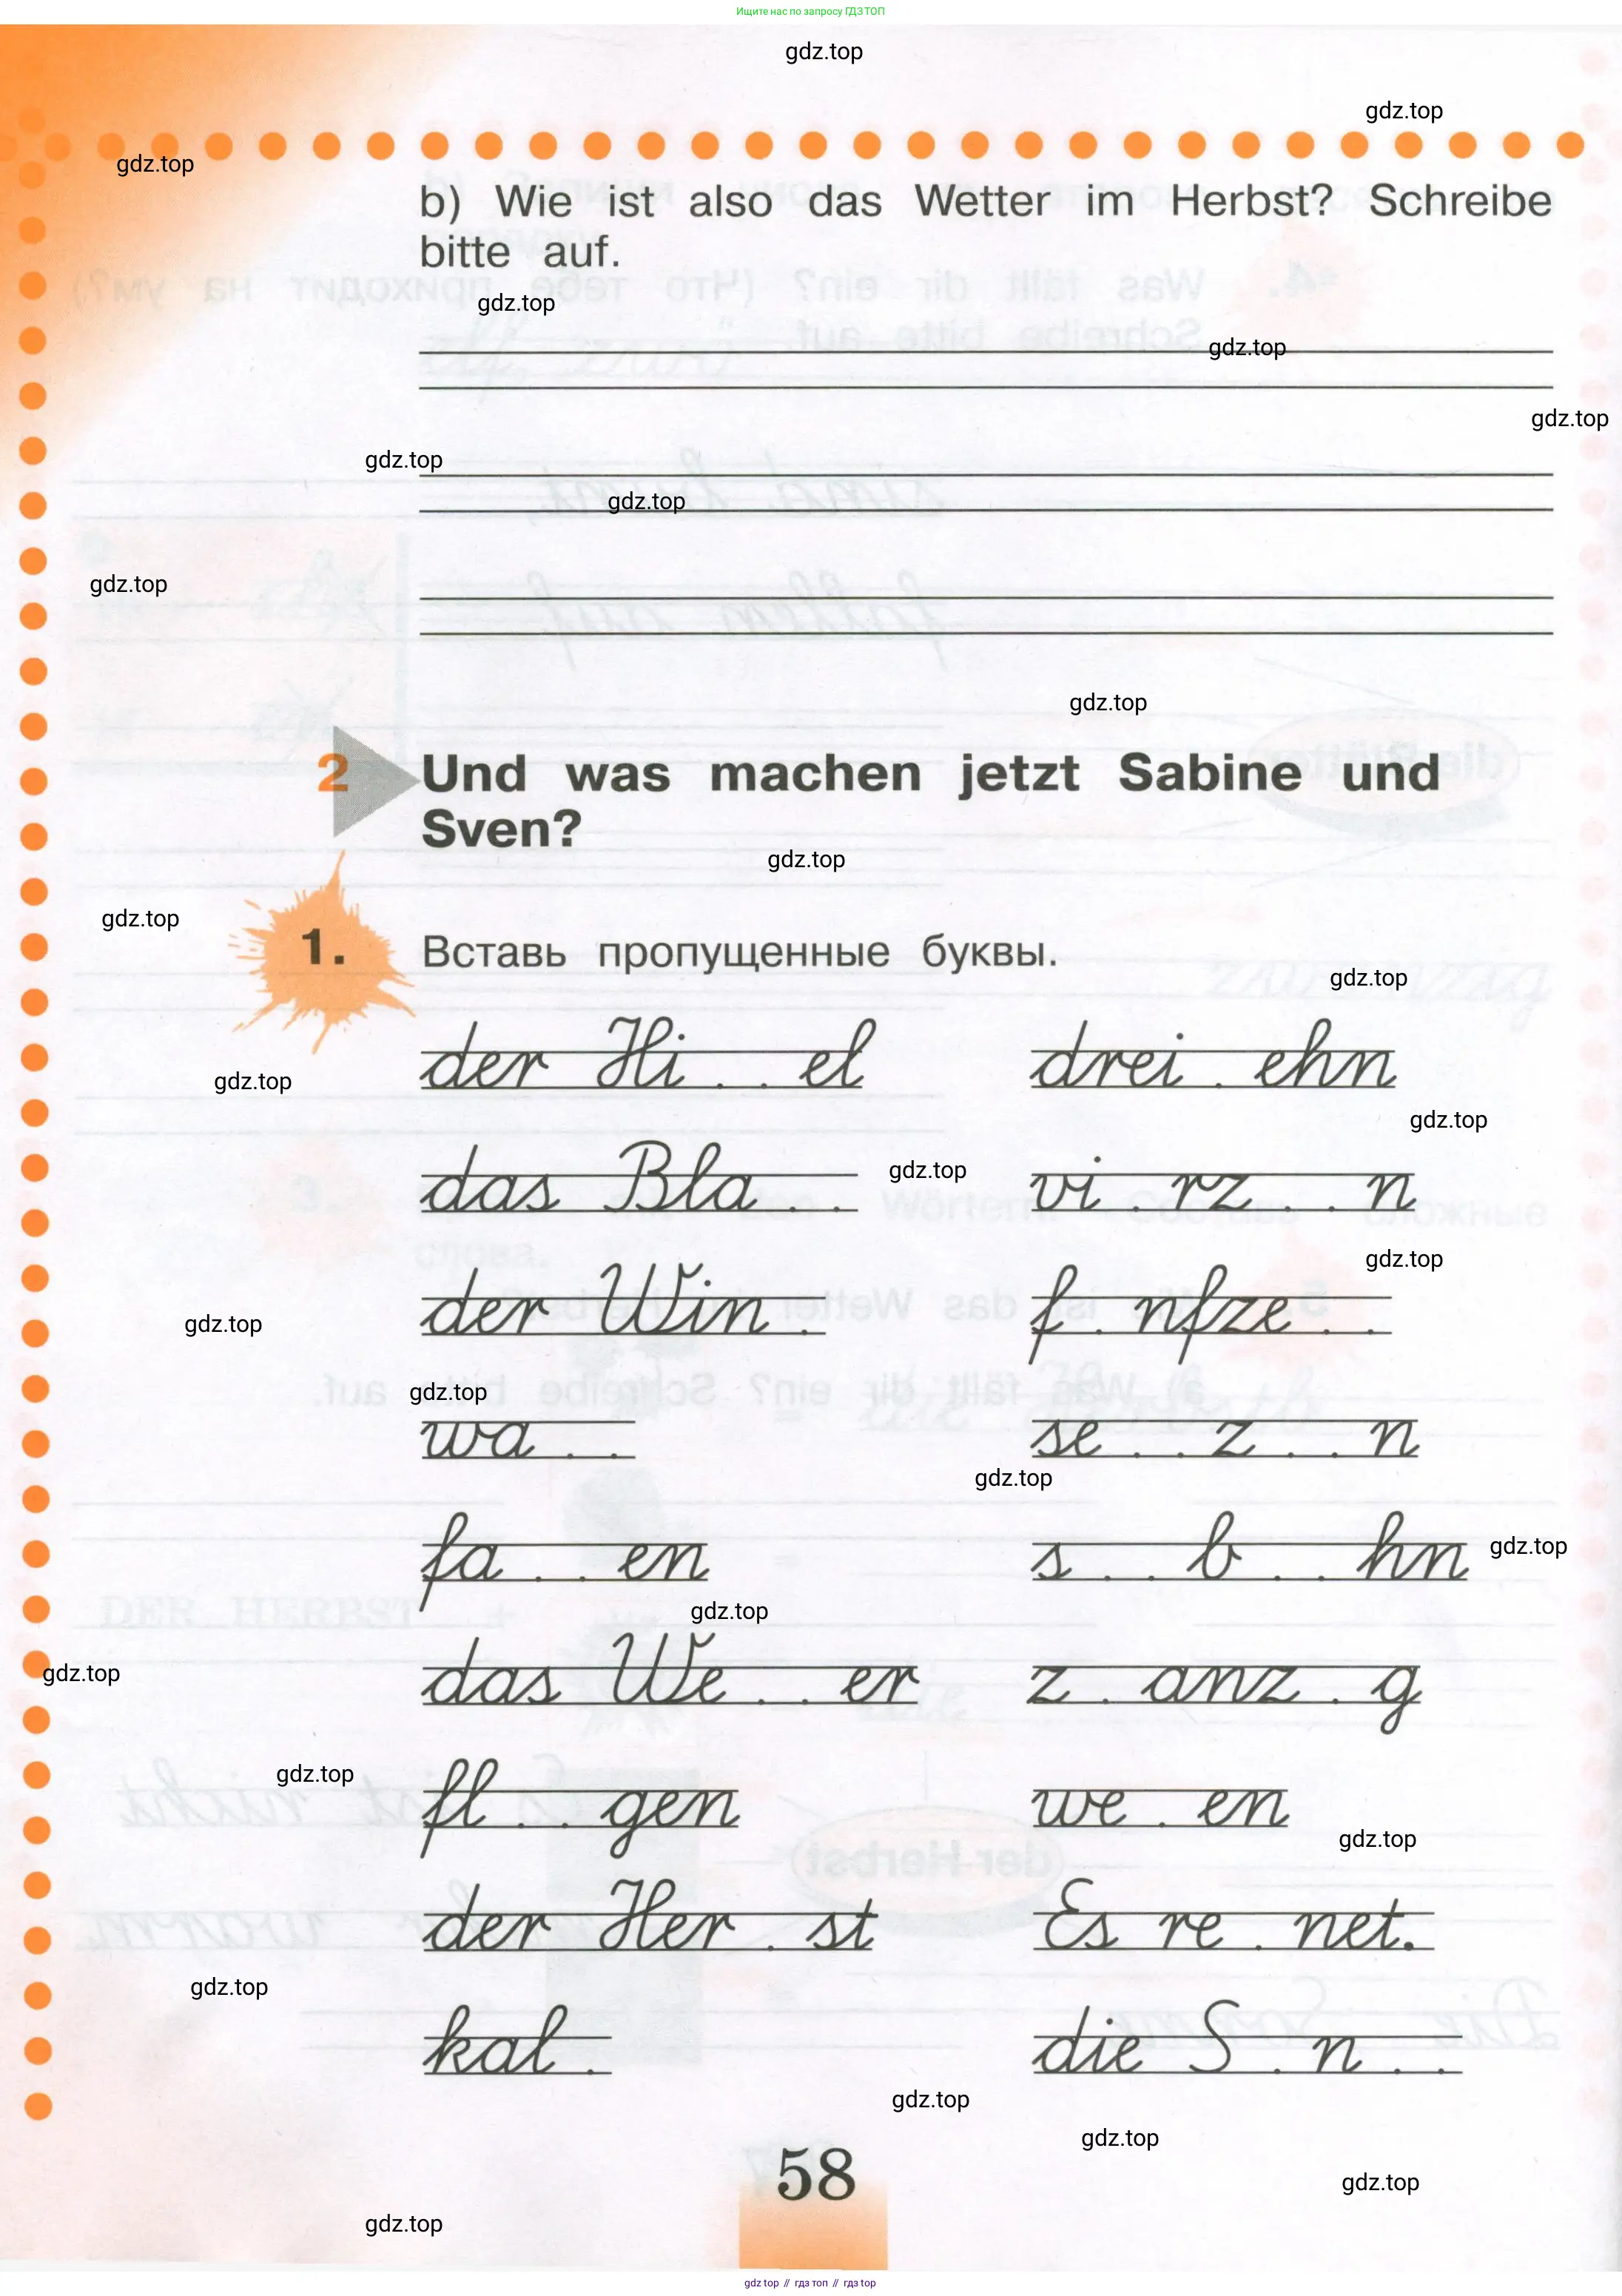 Ищите нас по запросу ГДЗ ТОП
gdz.top
gdz.top
gdz.top
b) Wie ist also das Wetter im Herbst? Schreibe
bitte auf.
gdz.top
gdz.top
gdz.top
gdz.top
gdz.top
gdz.top
gdz.top
2 Und was machen jetzt Sabine und
Sven?
gdz.top
gdz.top
1. Вставь пропущенные буквы.
gdz.top
der Hi . . el drei . ehn
gdz.top
gdz.top
das Bla . . gdz.top vi . rz . . n
gdz.top
der Win . f . nfze . .
gdz.top
gdz.top
wa . . se . . z . . n
gdz.top
fa . . en s . . b . . hn gdz.top
gdz.top
gdz.top
das We . . er z . anz . g
gdz.top
fl . . gen we . en
gdz.top
der Her . st Es re . net.
gdz.top
kal . die S . n . .
gdz.top
gdz.top
58
gdz.top
gdz.top
gdz top // гдз топ // гдз top